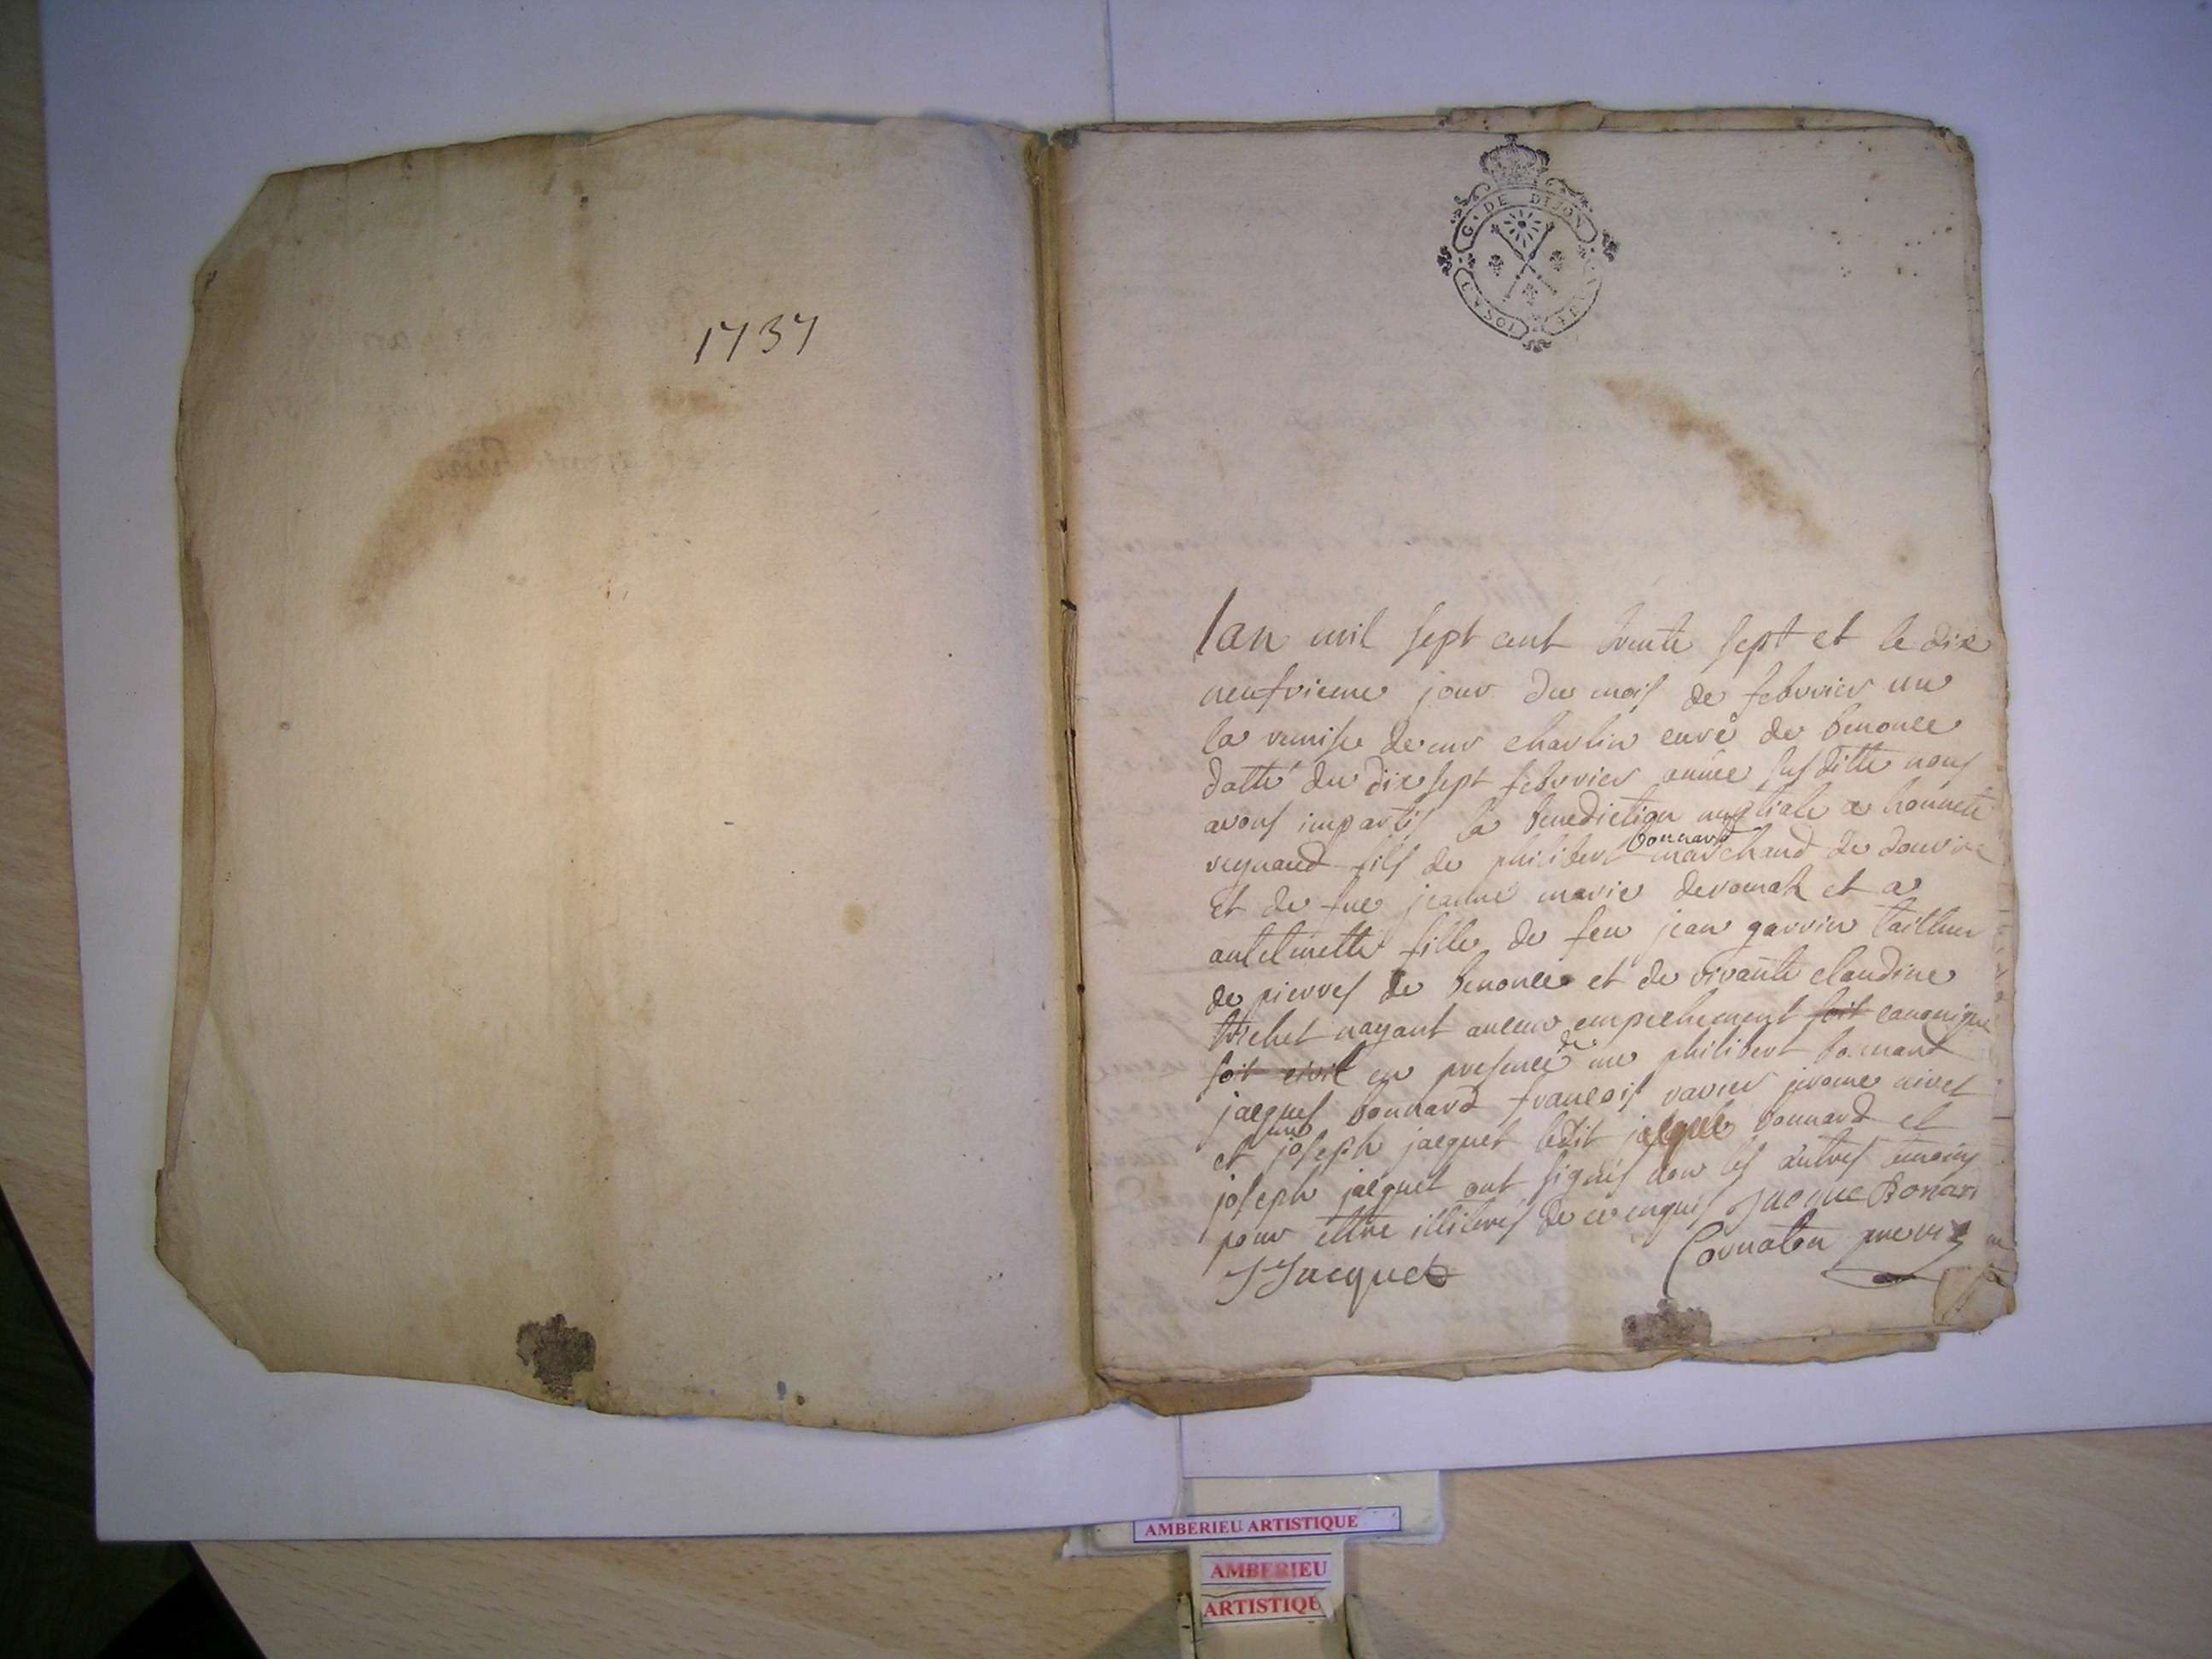 1737
G. DE DIJON
lan mil sept cent trente sept et le dix
neufvieme jour du mois de febvrier vu
la remise de mr charlin curé de benonce
datté du dix sept febvrier année susditte nous
avons impartis la benediction nuptiale a honneste
bonnard
reynaud fils de philibert marchand de douvre
et de fue jeanne marie deromak et a
antelmette fille de feu jean garvin tailleur
de pierres de benonce et de vivante claudine
trichet nayant aucun empechement soit canonique
soit civil en presence de mr philibert bonnard
jacques bonnard francois ravier jerome nivet
et joseph jacquet ledit jacques bonnard et
joseph jacquet ont signés non les autres temoins
pour ettre illiterés de ce enquis Jacque Bonar
J Jacquet
Cornaton
AMBERIEU ARTISTIQUE
AMBERIEU
ARTISTIQUE